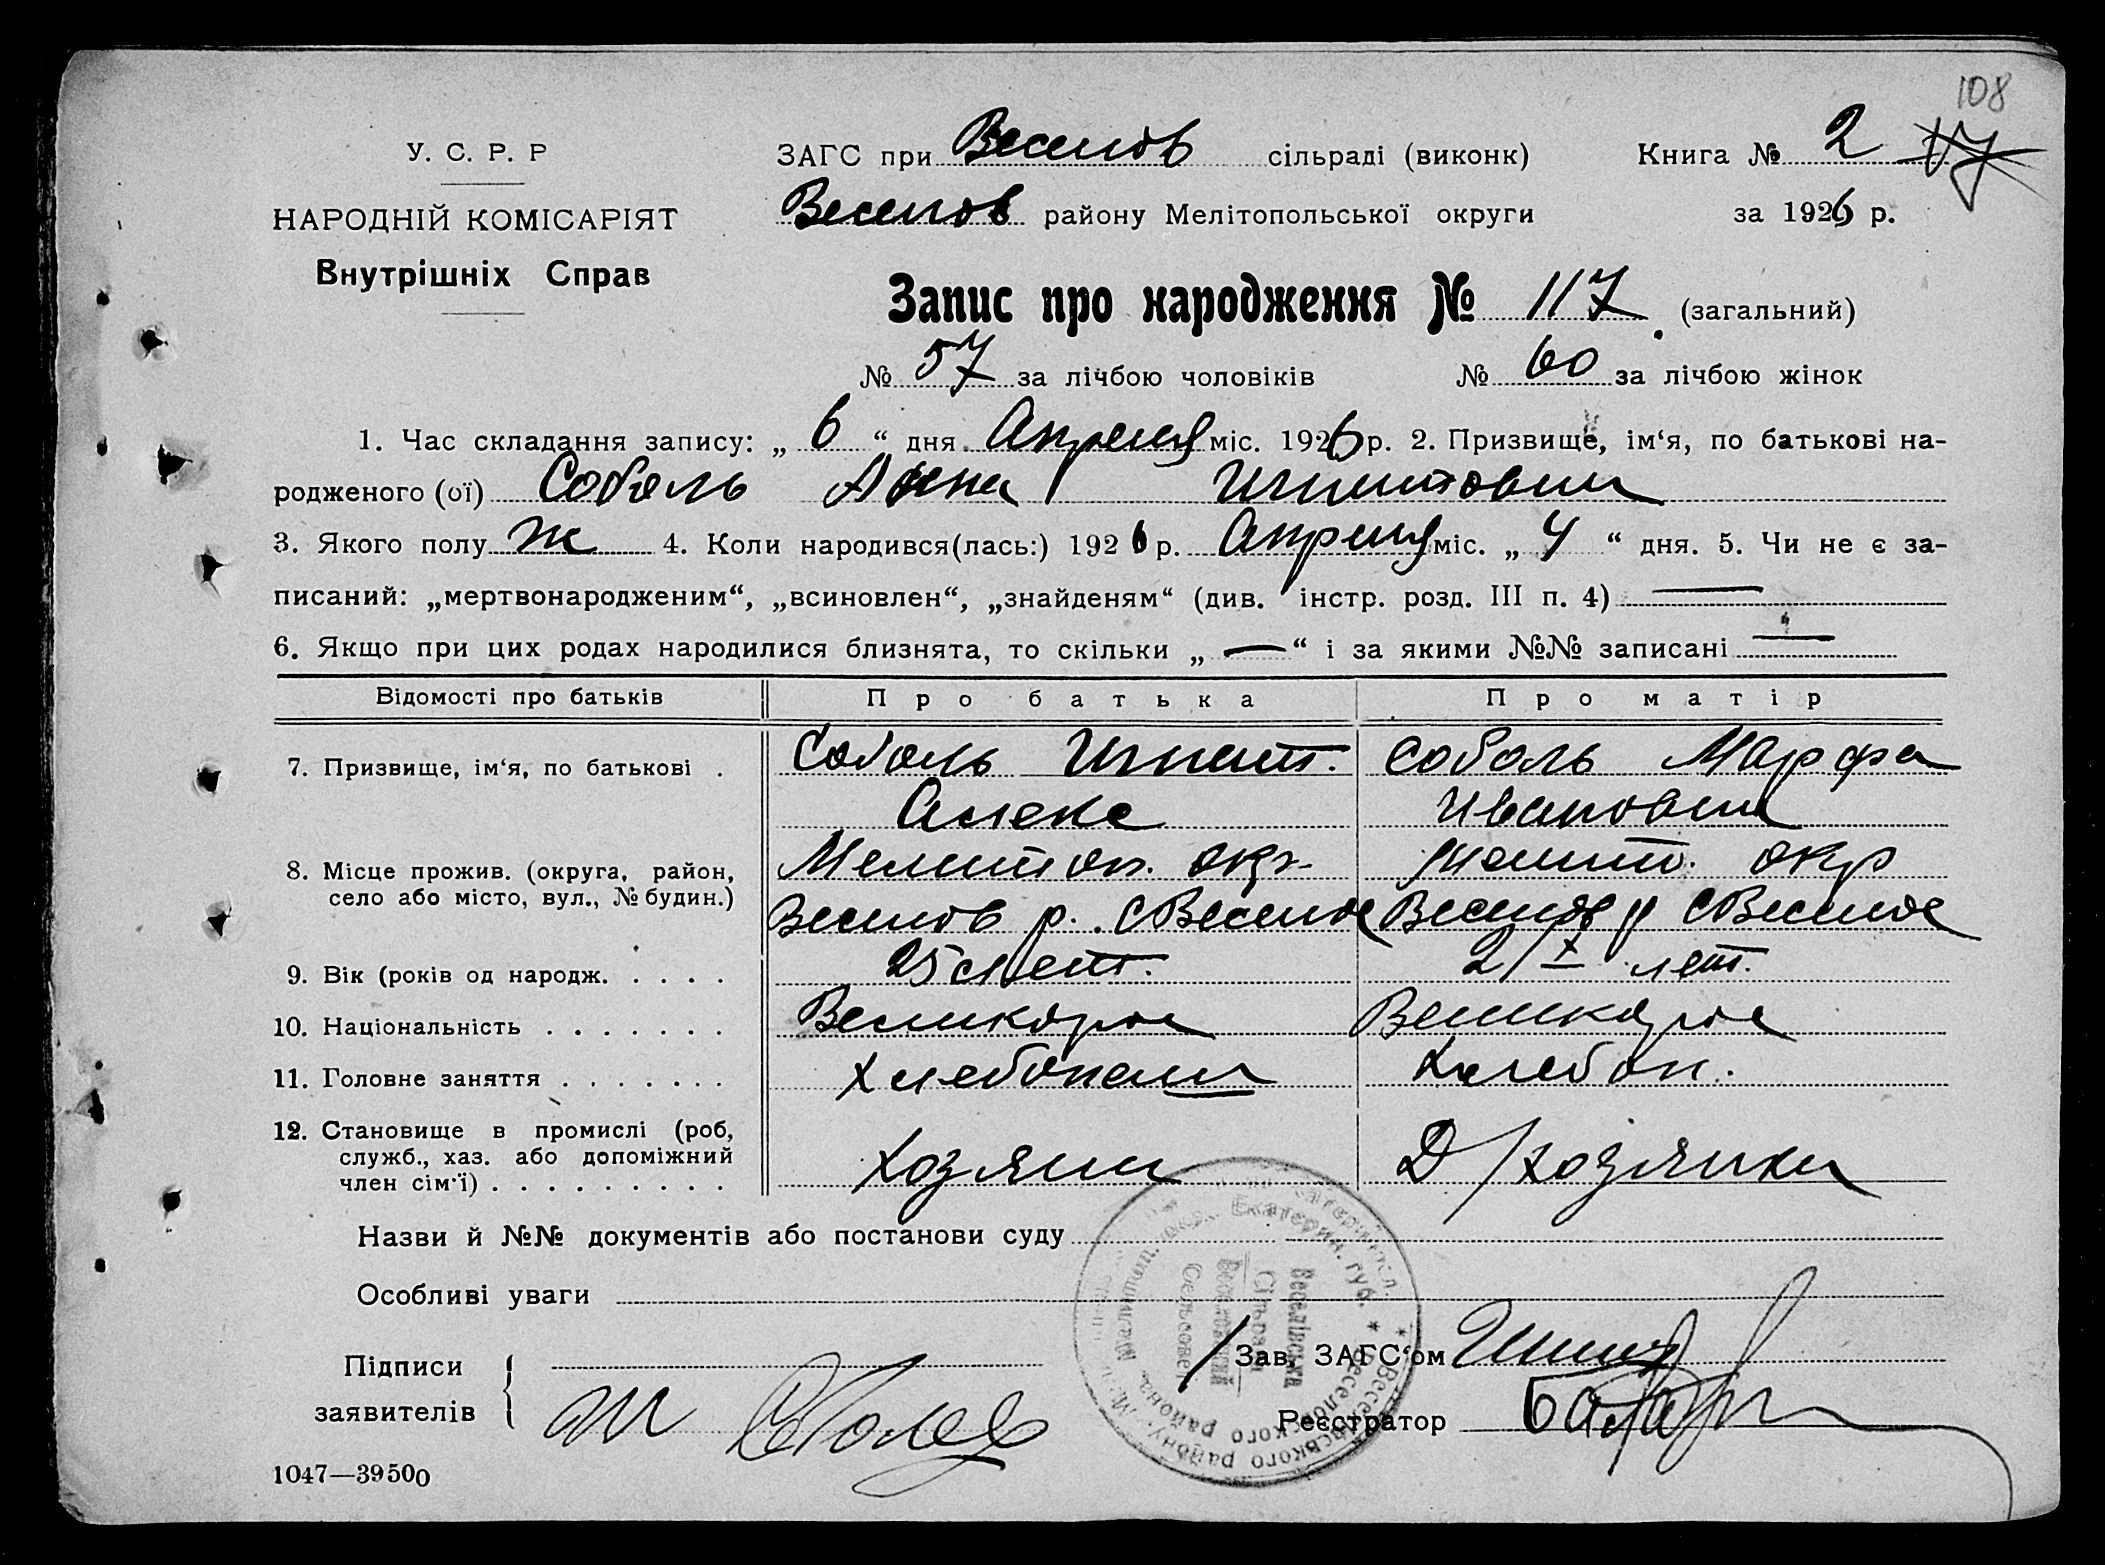 108
У. С. Р. Р
НАРОДНІЙ КОМІСАРІЯТ
Внутрішніх Справ
ЗАГС при Веселов сільраді (виконк) Книга № 2 17
Веселов району Мелітопольської округи за 1926 р.
Запис про народження № 117 (загальний)
№ 57 за лічбою чоловіків № 60 за лічбою жінок
1. Час складання запису: „ 6 “ дня Апреля міс. 1926 р. 2. Призвище, ім‘я, по батькові на-
родженого (ої) Соболь Анна Игнатовна
3. Якого полу ж 4. Коли народився(лась:) 1926 р. Апреля міс. „ 4 “ дня. 5. Чи не є за-
писаний: „мертвонародженим“, „всиновлен“, „знайденям“ (див. інстр. розд. III п. 4) —
6. Якщо при цих родах народилися близнята, то скільки „ — “ і за якими №№ записані —
Відомості про батьків Про батька Про матір
7. Призвище, ім‘я, по батькові . Соболь Игнат. Соболь Марфа
Алекс Ивановна
8. Місце прожив. (округа, район, Мелитоп. окр. Мелит. окр
село або місто, вул., № будин.) Веселов р. с Веселое Веселов р с Веселое
9. Вік (років од народж. . . . . 25 лет. 21 лет.
10. Національність . . . . . . . Великорос Великорос
11. Головне заняття . . . . . . . Хлебопаш Хлебоп.
12. Становище в промислі (роб, Хозяин Д/хозяйка
служб., хаз. або допоміжний
член сім‘ї) . . . . . . . . .
Назви й №№ документів або постанови суду
Особливі уваги
Підписи Зав. ЗАГС‘ом
заявителів Реєстратор
Екатерин. губ. * Веселовского района
Веселівська
Сільрада
Веселовский
Сельсовет
1047—39500